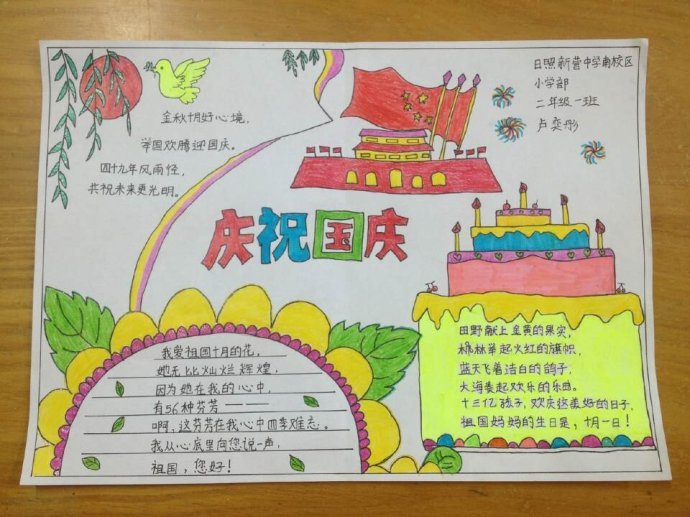 金秋十月好心境，
举国欢腾迎国庆。
四十九年风雨怪，
共祝未来更光明。
日照新营中学南校区
小学部
二年级一班
卢奕彤
庆祝国庆
我爱祖国十月的花，
她无比灿烂辉煌，
因为她在我的心中
有56种芬芳———
啊，这芬芳在我心中四季难忘。
我从心底里向您说一声，
祖国，您好！
田野献上金黄的果实，
枫林举起火红的旗帜，
蓝天飞着洁白的鸽子，
大海奏起欢乐的乐曲。
十三亿孩子，欢庆这美好的日子，
祖国妈妈的生日是，十月一日！